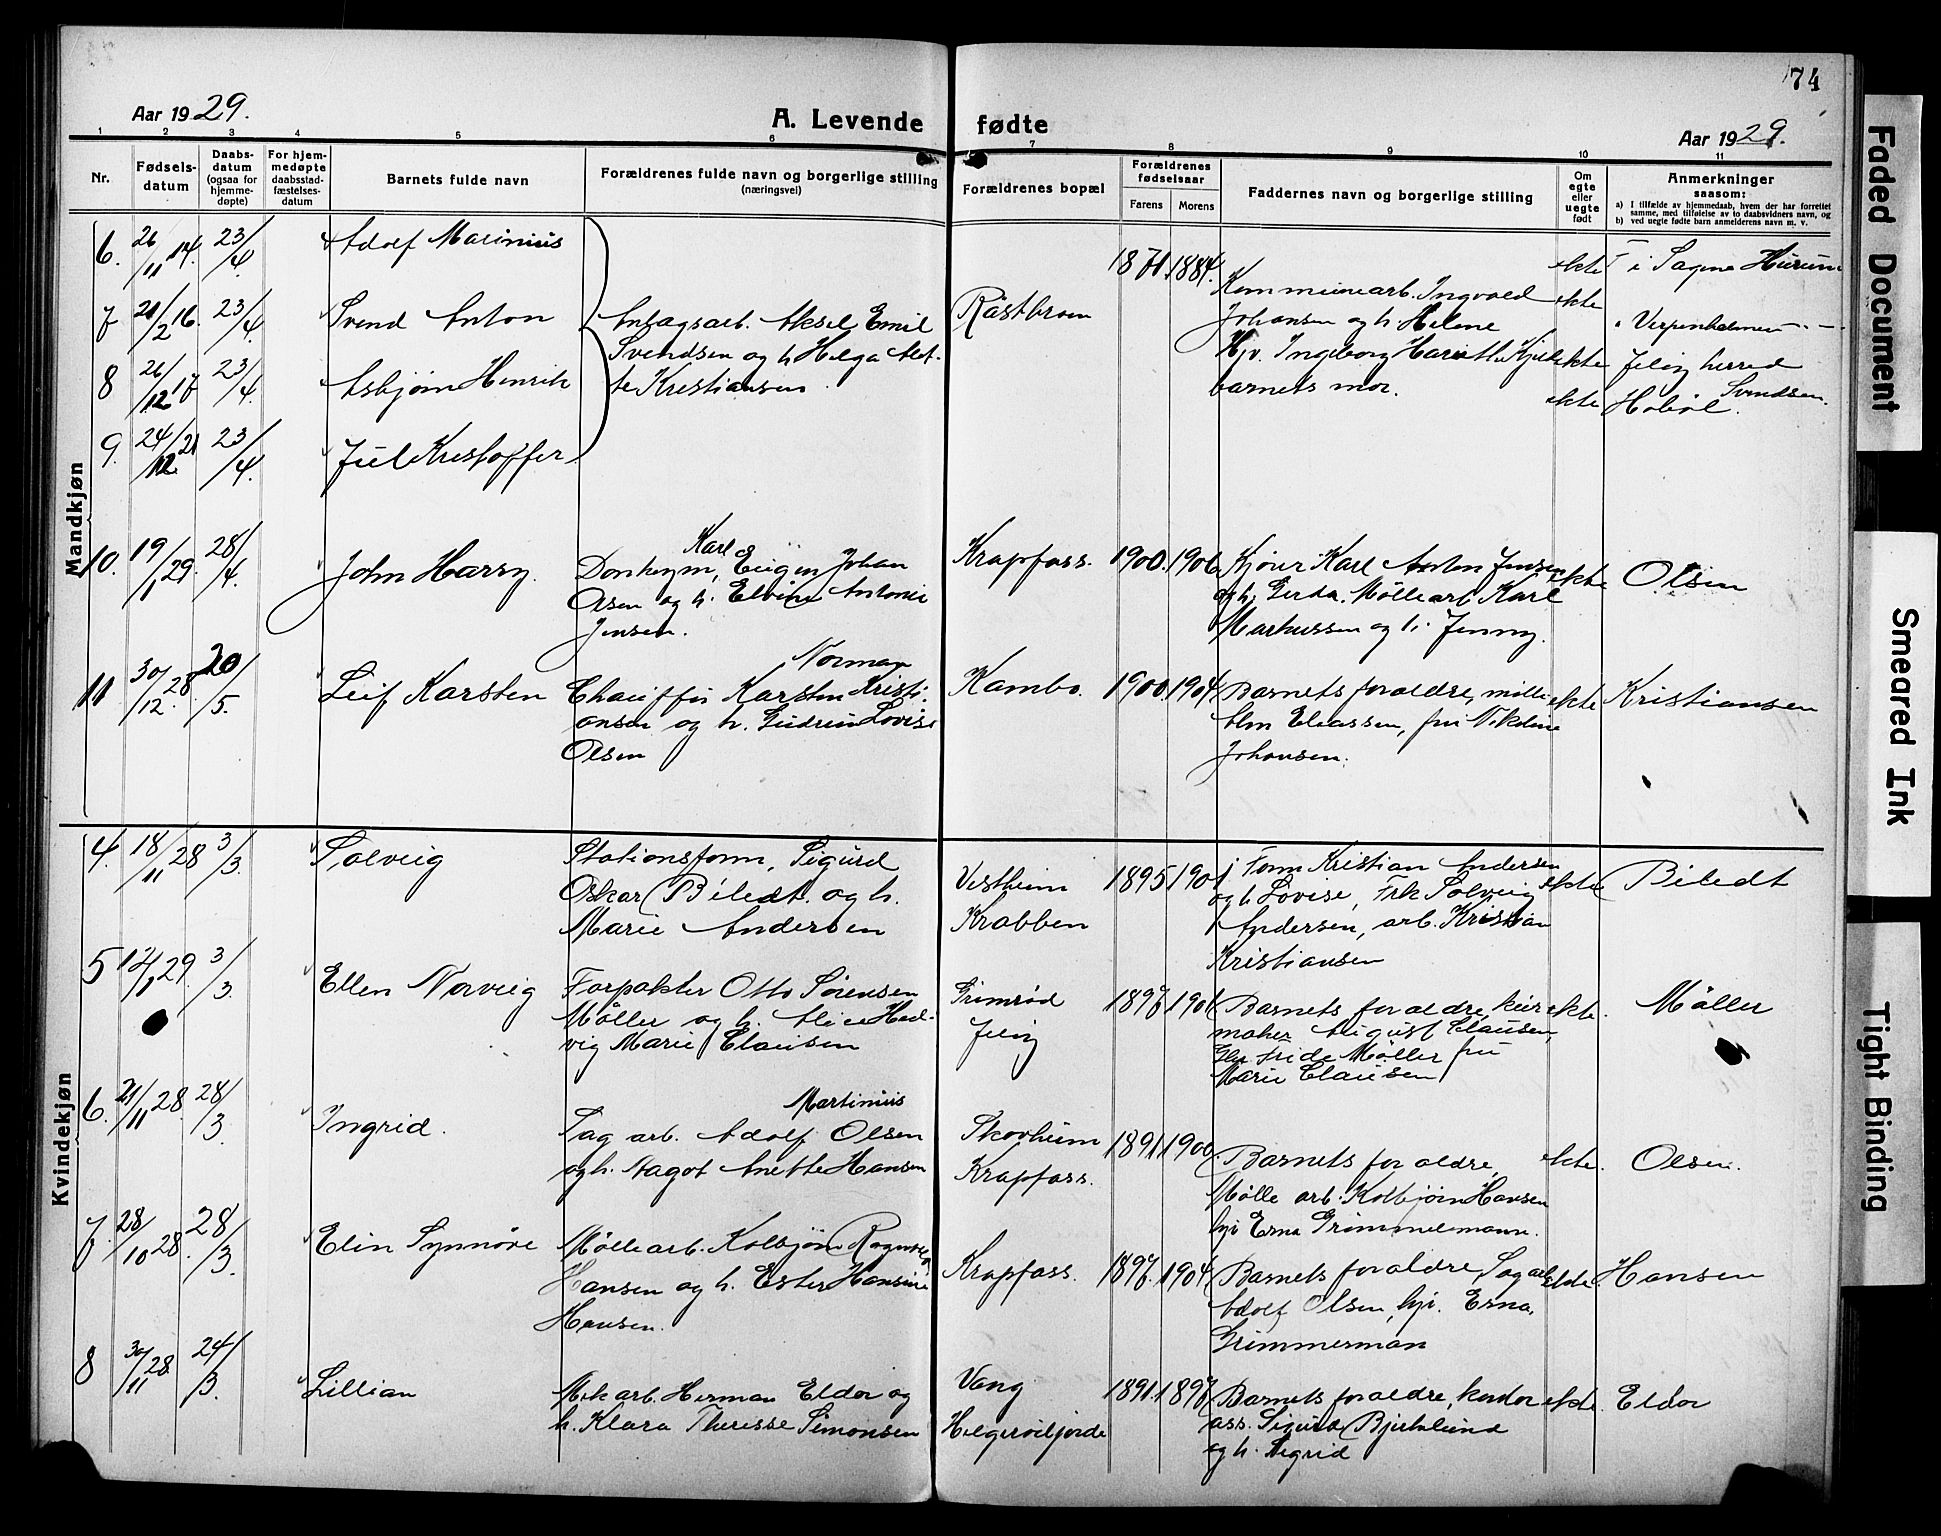 74
Aar 1929.
A. Levende fødte
Aar 1929.
1 2 3 4 5 6 7 8 9 10 11
Nr.
Fødsels-
datum
Daabs-
datum
(ogsaa for
hjemme-
døpte)
For hjem-
medøpte
daabsstad-
fæstelses-
datum
Barnets fulde navn
Forældrenes fulde navn og borgerlige stilling
(næringsvei)
Forældrenes bopæl
Forældrenes
fødselsaar
Farens Morens
Faddernes navn og borgerlige stilling
Om
egte
eller
uegte
født
Anmerkninger
saasom:
a) I tilfælde av hjemmedaab, hvem der har forrettet
samme, med tilføielse av to daabsvidners navn, og
b) ved uegte fødte barn anmelderens navn m. v.
Mandkjøn
6. 26/11 14. 23/4 Adolf Marinius
1871. 1884. ekte i Sagene Hurum
7 21/2 16. 23/4 Svend Anton
Anlægsarb. Aksel Emil
Svendsen og h Helga Anet-
te Kristiansen
Råstbroen
Kommunearb. Ingvald
Johansen og h. Helene
Hjv. Ingeborg
barnets mor.
ekte
8 26/12 17 23/4 Asbjørn Henrik
ekte Jeløy herred
9. 24/12 21 23/4 Jul Kristoffer
ekte Hobøl.
Svendsen.
10. 19/1 29. 28/4. John Harry.
Karl
Donkeym, Eugen Johan
Olsen og h. Elvine Antonie
Jensen.
Krapfoss. 1900. 1906
Kjører Karl Anton Jensen
og h. Gerda. Møllearb Karl
Markussen og h. Jenny.
ekte Olsen
11 30/12 28. 20/5. Leif Karsten
Norman
Chauffør Karsten Kristi-
ansen og h. Gudrun Lovise
Olsen
Kambo. 1900. 1904.
Barnets foraldre, mølle
Elm Eleassen, fru
Johansen.
ekte Kristiansen
Kvindekjøn
4. 18/11 28 3/3. Solveig
Stationsform, Sigurd
Oskar Biledt. og h.
Marie Andersen
Vestheim
Krabben
1895 1901
Form Kristian Andersen
og h Lovise, Frk Solveig
Andersen, arb. Kristian
Kristiansen
ekte Biledt
5 12/1 29. 3/3. Ellen Norveig
Forpakter Otto Sörensen
Möller og h. Alice Hed-
vig Marie Clausen
Grimrød
Jeløy
1897. 1901
Barnets foraldre, kur
maker August Clausen,
Elv. Fride Möller fru
Marie Clausen
ekte. Möller
6. 21/11 28. 28/3. Ingrid.
Martinius
Sag arb. Adolf Olsen
og h. Dagot Anette Hansen
Skovheim
Krapfoss.
1891. 1900.
Barnets foraldre,
Mølle arb. Kolbjørn Hansen
hjv Erna Grimmelmann.
ekte. Olsen.
7. 28/10 28. 28/3. Elin Synnöve
Møllearb. Kolbjørn Ragnvald
Hansen og h. Ester Hansine
Hansen.
Krapfoss. 1897. 1904.
Barnets foraldre, Sag arb
Adolf Olsen, hjv. Erna,
Grimmerman
ekte. Hansen
8 30/11 28. 24/3. Lillian
Mek arb. Herman Eldor og
h. Klara Theresse Simonsen
Vang
Helgerødfjorde
1891. 1897.
Barnets foraldre, kontor
ass. Sigurd Bjerklund
og h. Sigrid
ekte. Eldor
Faded Document
Smeared Ink
Tight Binding